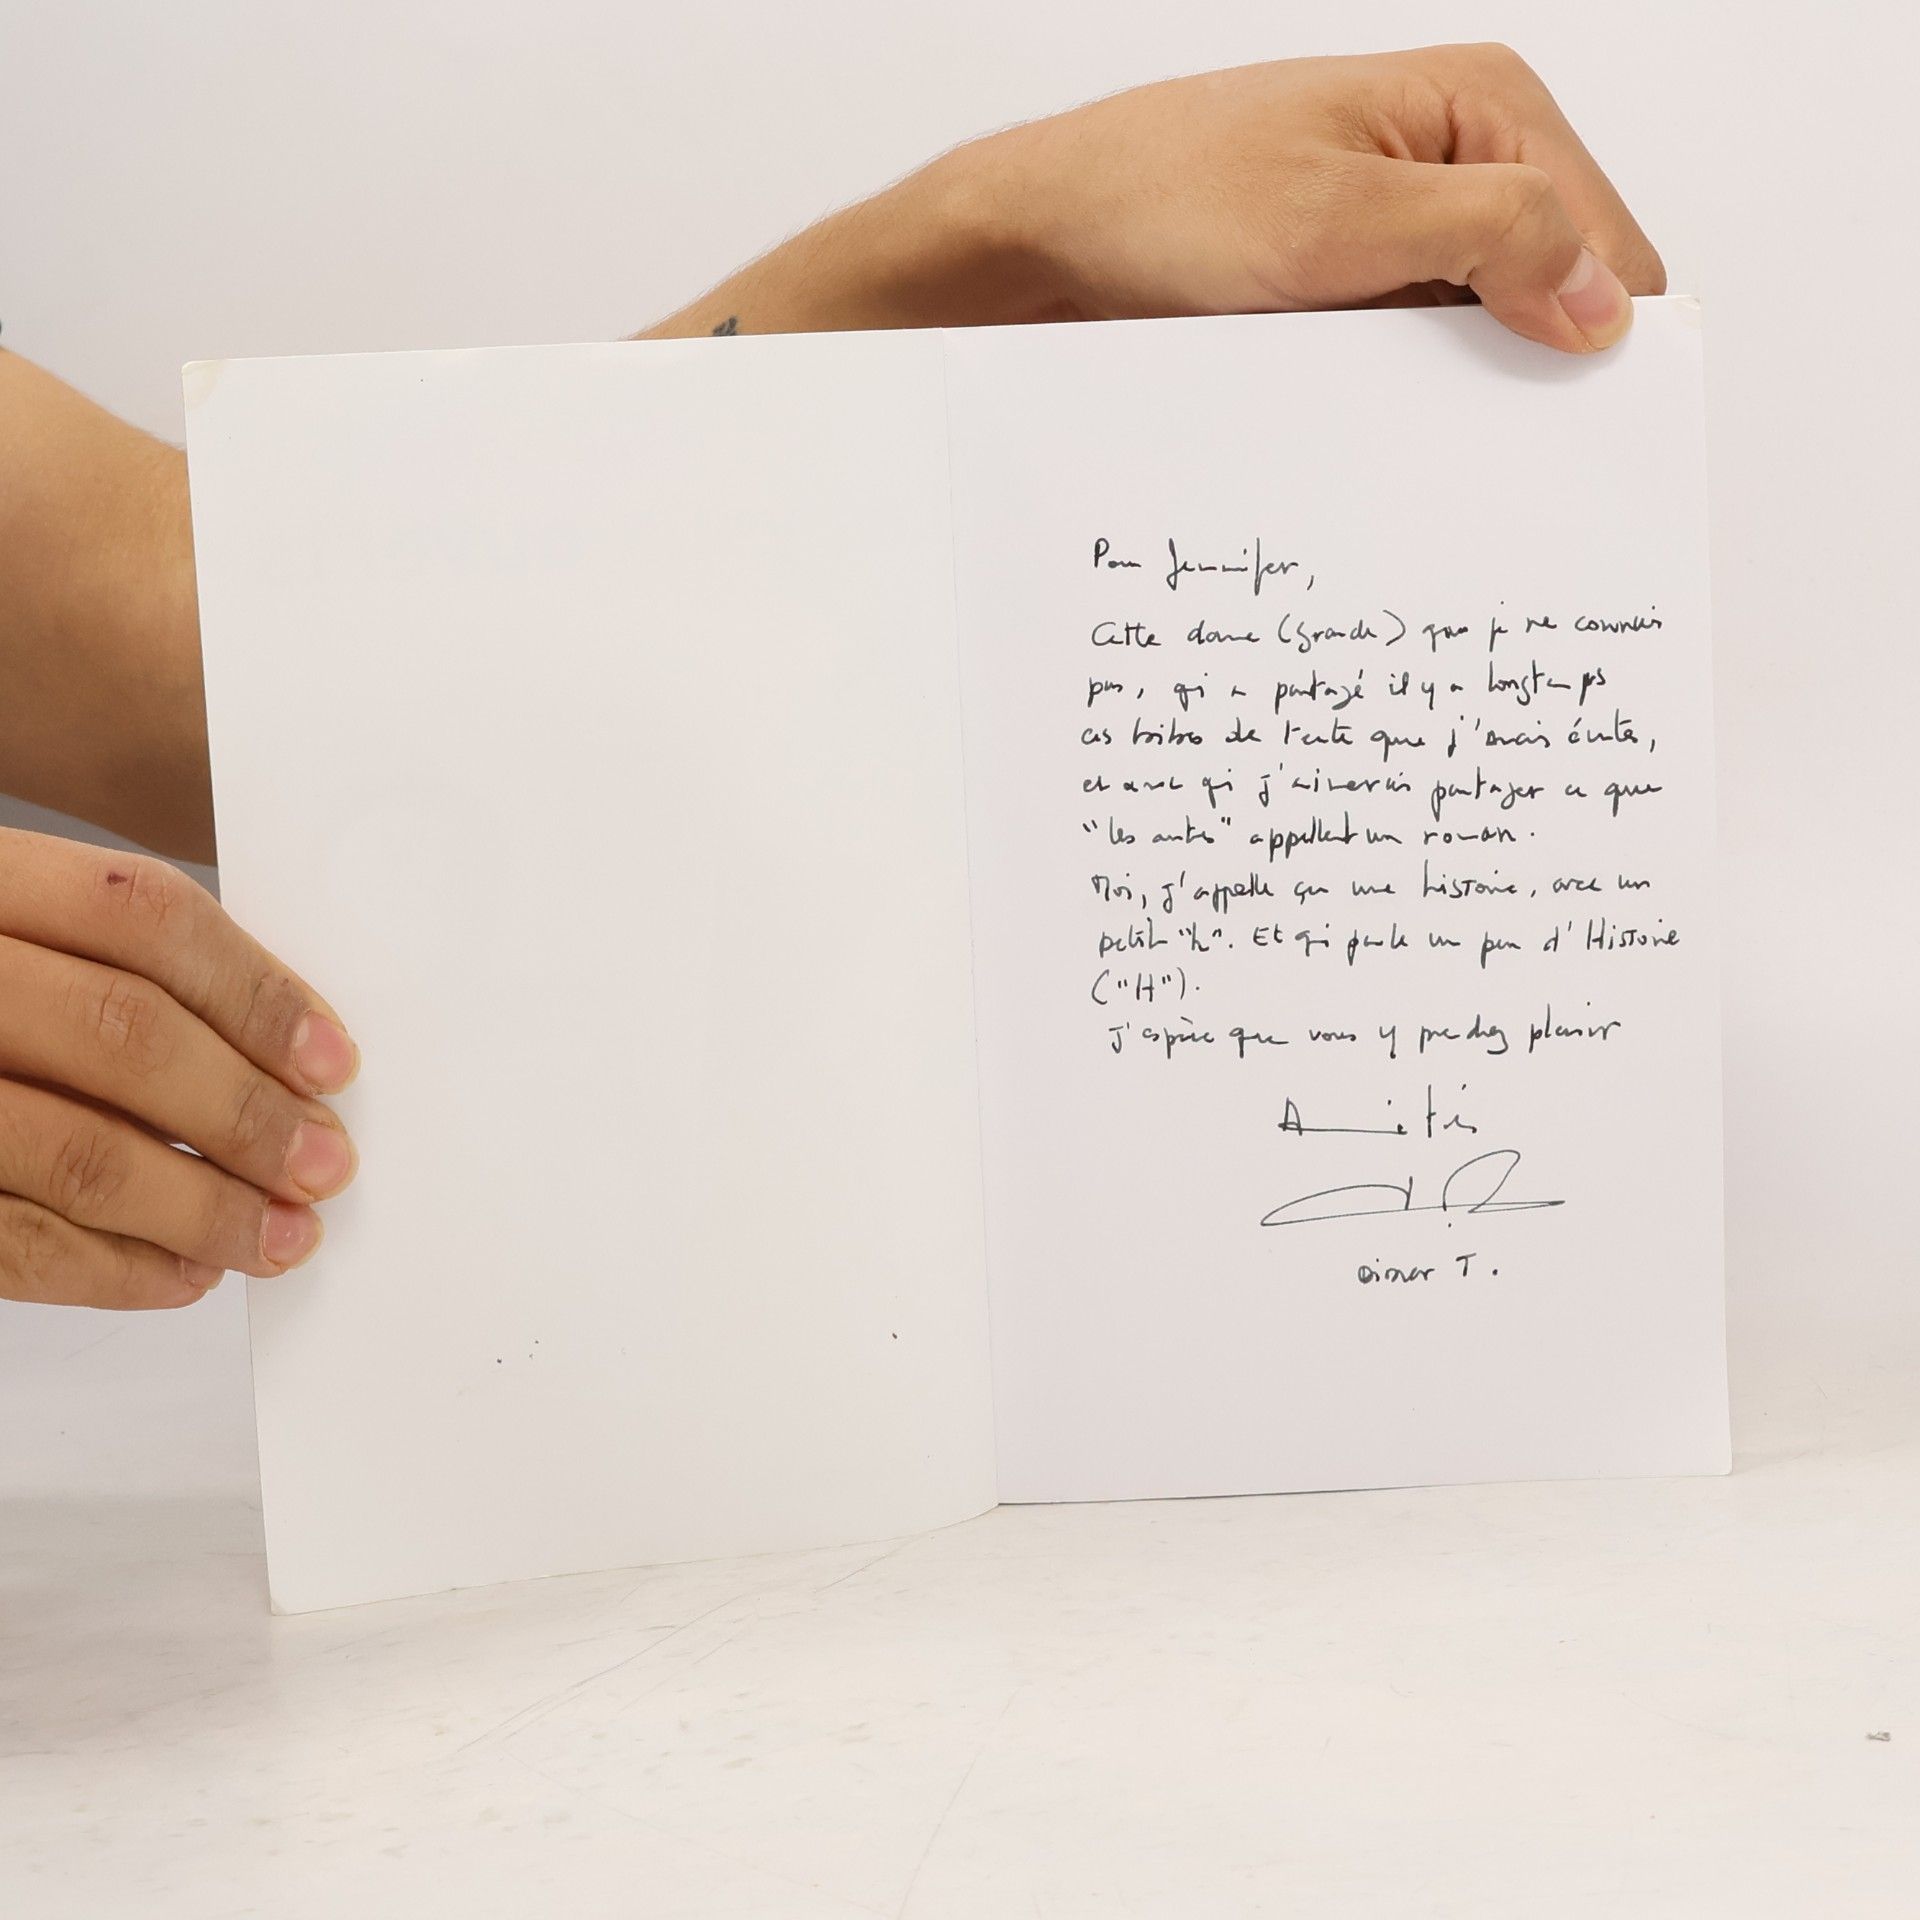 Pour Jennifer,
Cette dame (grande) que je ne connais
pas, qui a partagé il y a longtemps
ces bribes de texte que j'avais écrites,
et avec qui j'aimerais partager ce que
"les autres" appellent un roman.
Moi, j'appelle ça une histoire, avec un
petit "h". Et qui parle un peu d'Histoire
("H").
J'espère que vous y prendrez plaisir
Amitiés
T.